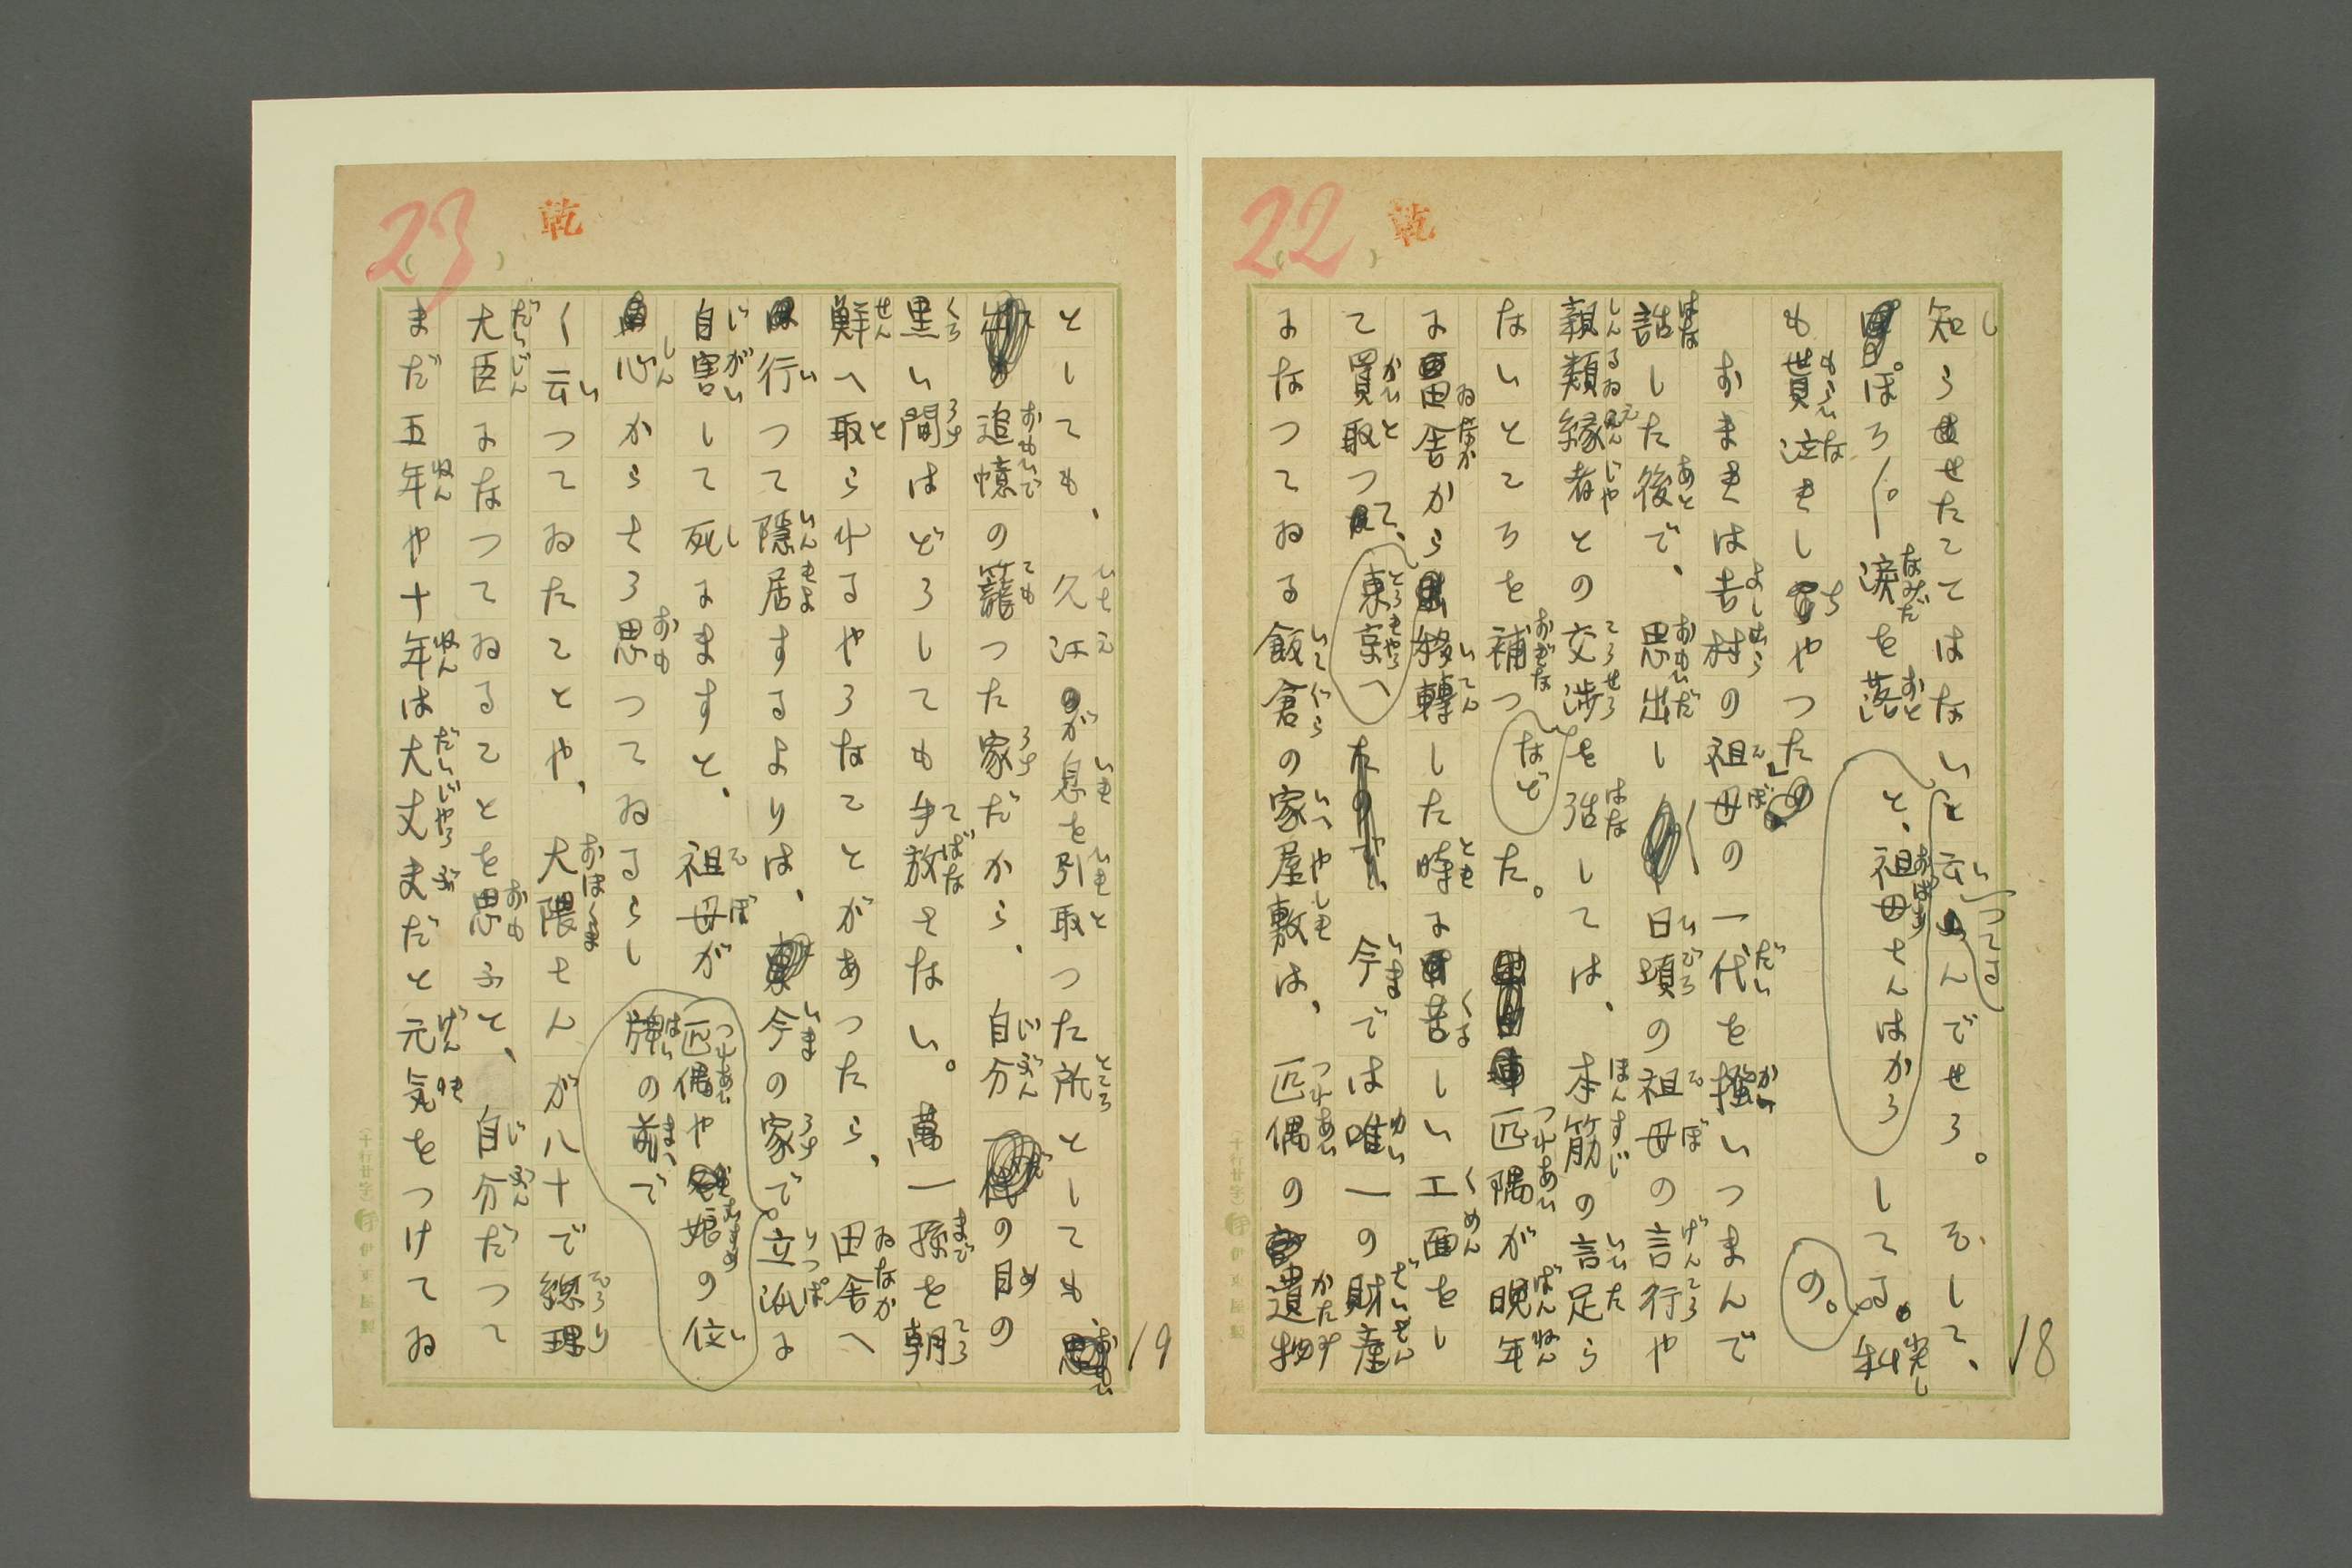 22
乾
18
知らせたてはないと云つてるんでせろ。そして、
ぽろ〳〵涙を落と、祖母さんはかろしてる。私
も貰泣きしちやつたの。」
おまきは吉村の祖母の一代を掻いつまんで
話した後で、思出し〳〵日頃の祖母の言行や
親類縁者との交渉を話しては、本筋の言足ら
ないところを補つなどた。匹偶が晩年
に田舎から移轉した時に苦しい工面をし
て買取つて、東京へ今では唯一の財産
になつてゐる飯倉の家屋敷は、匹偶の遺物
23
乾
19
としても、久江が息を引取つた所としても
追憶の籠つた家だから、自分の目の
黒い間はどうしても手放さない。萬一孫を朝
鮮へ取られるやうなことがあつたら、田舎へ
行つて隠居するよりは、今の家で立派に
自害して死にますと、祖母が匹偶や娘の位
牌の前で
心からさう思つてゐるらし
く云つてゐたことや、大隈さんが八十で総理
大臣になつてゐることを思ふと、自分だつて
まだ五年や十年は大丈夫だと元気をつけてゐ